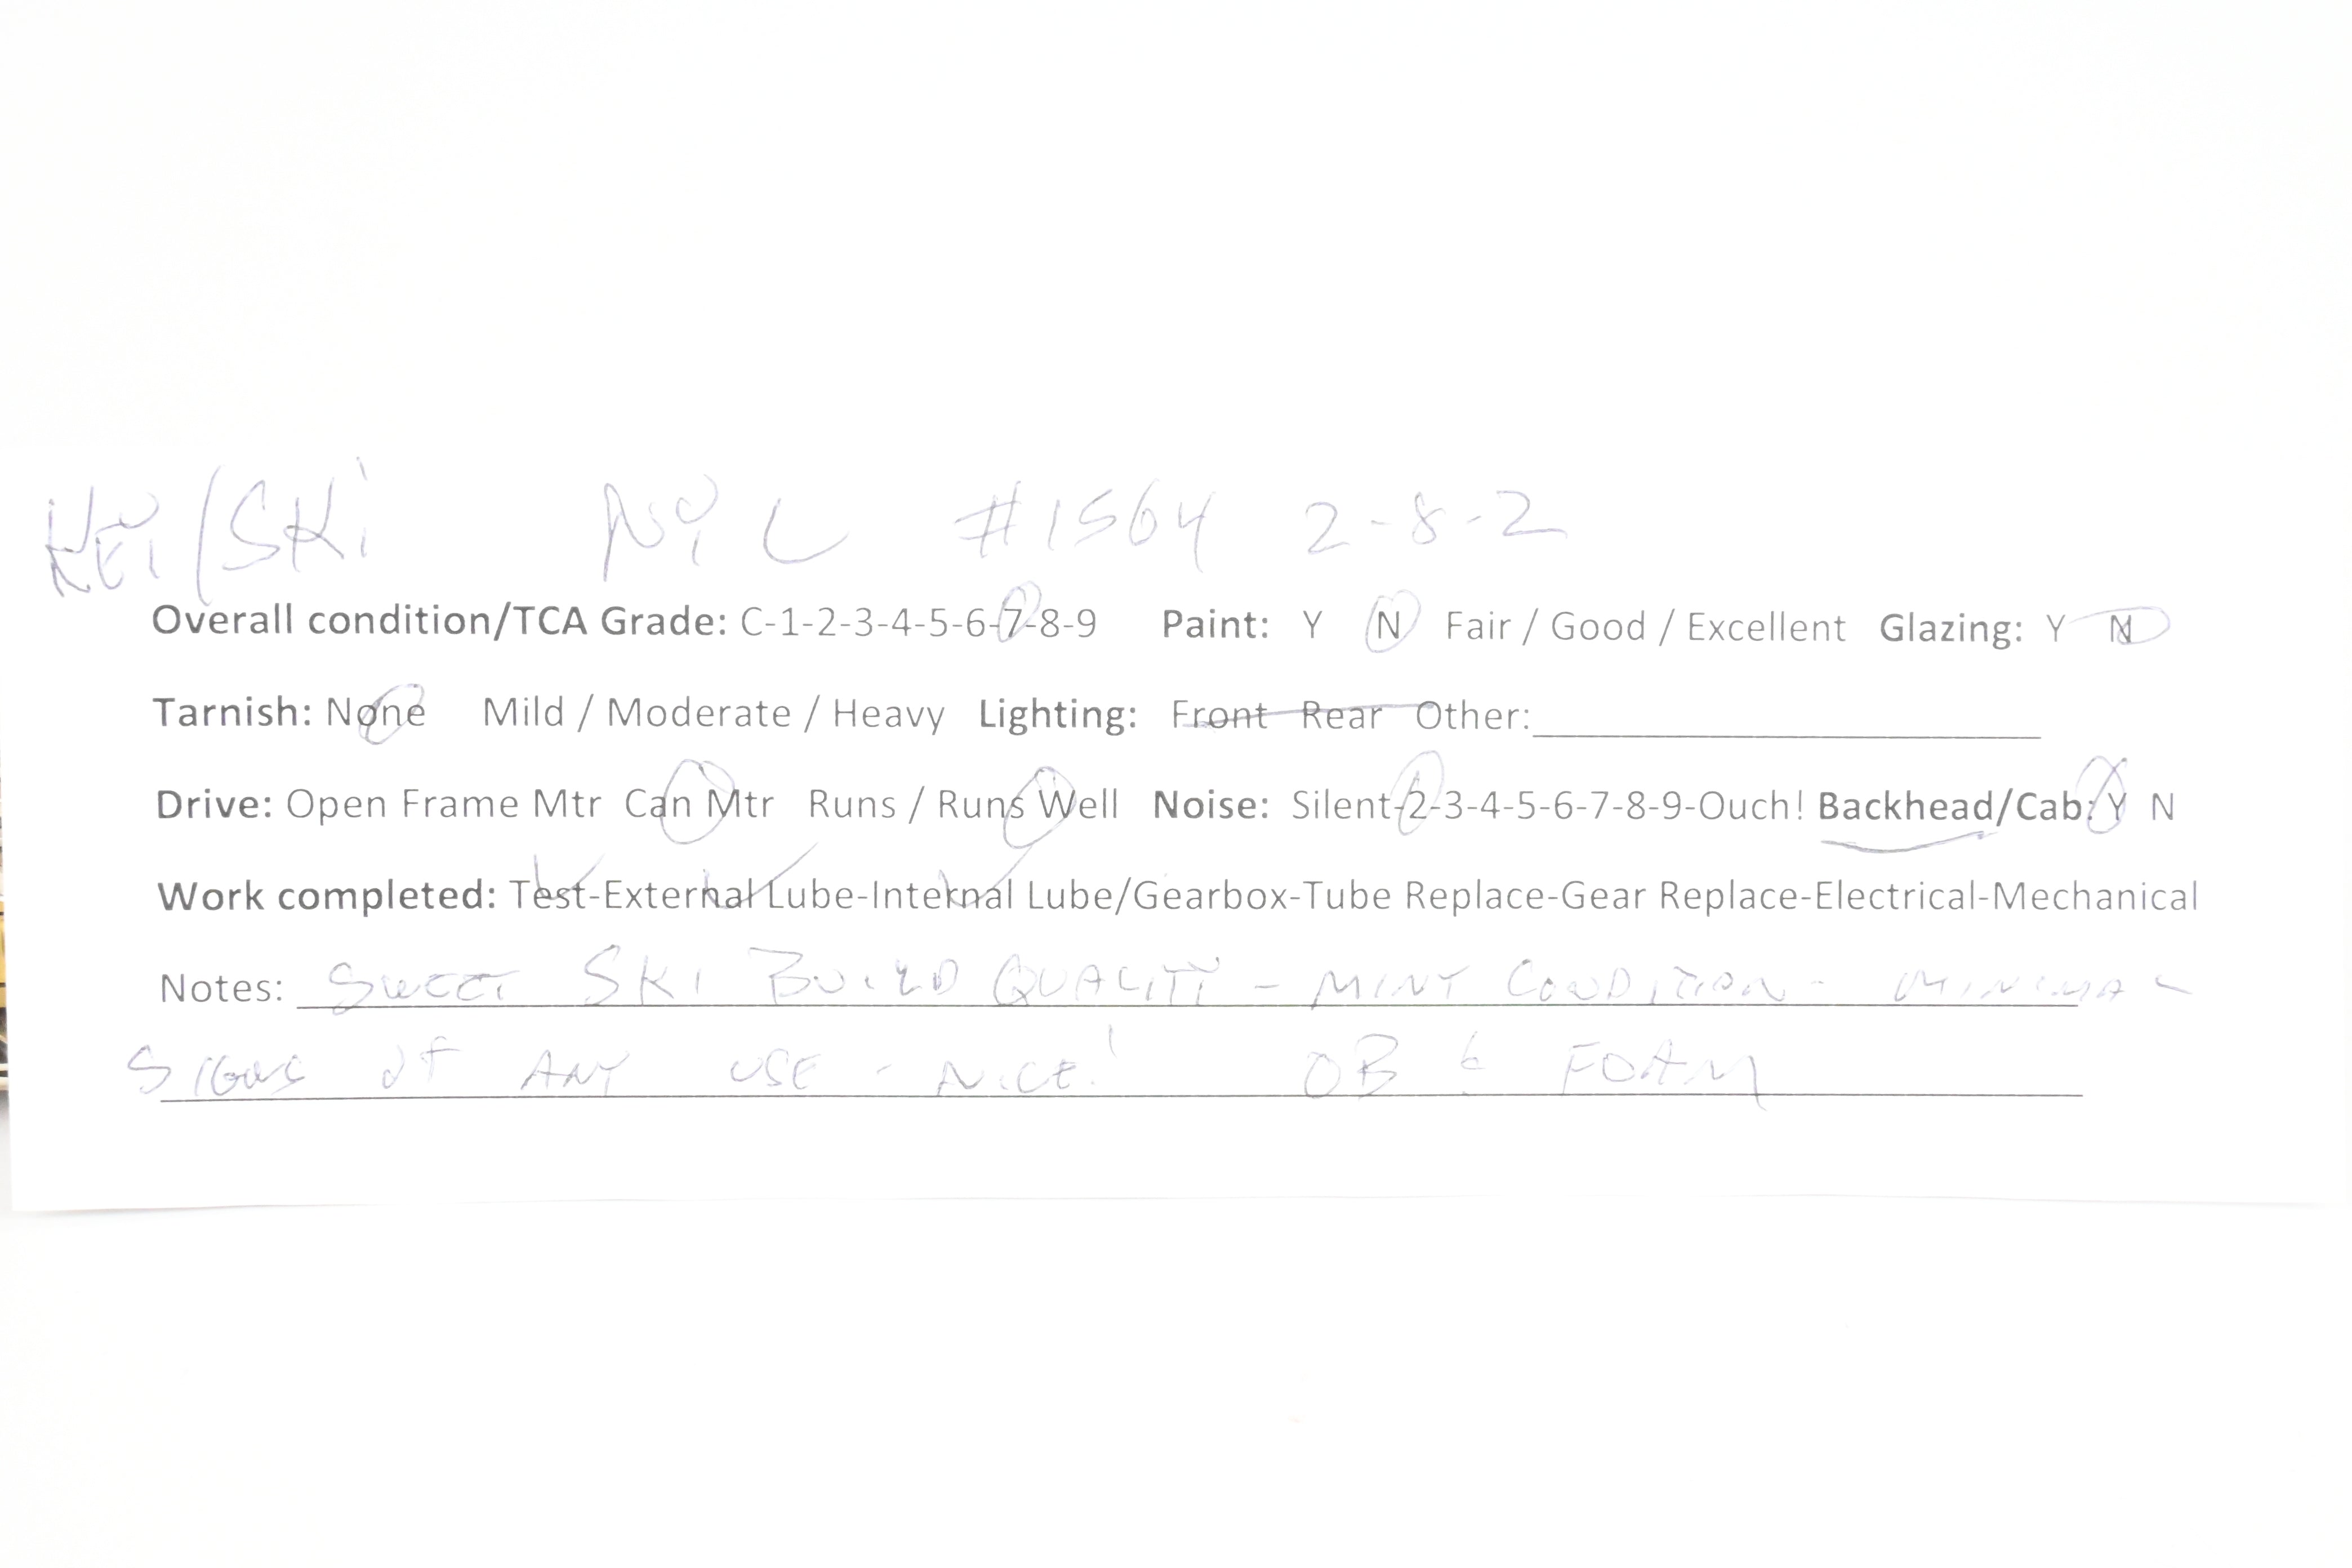 KEY/SKI NYC #1564 2-8-2
Overall condition/TCA Grade: C-1-2-3-4-5-6-7-8-9 Paint: Y N Fair / Good / Excellent Glazing: Y N
Tarnish: None Mild / Moderate / Heavy Lighting: Front Rear Other:
Drive: Open Frame Mtr Can Mtr Runs / Runs Well Noise: Silent-2-3-4-5-6-7-8-9-Ouch! Backhead/Cab: Y N
Work completed: Test-External Lube-Internal Lube/Gearbox-Tube Replace-Gear Replace-Electrical-Mechanical
Notes: SWEET SKI BUILD QUALITY - MINT CONDITION - MINIMAL
SIGNS OF ANY USE - NICE! OB & FOAM